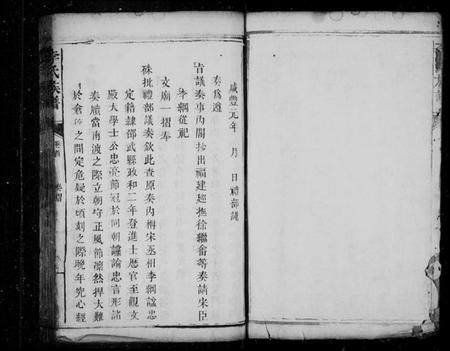 咸豐元年 月 日禮部謹
奏爲遵
旨議奏事內閣抄出福建廵撫徐繼畬等奏請宋臣
李綱從祀
文廟一摺奉
硃批禮部議奏欽此查原奏內稱宋丞相李綱諡忠
定籍隸邵武縣政和二年登進士歷官至觀文
殿大學士公忠亮節冠於同朝讜論忠言形諸
奏牘當南渡之際立朝守正風節凜然捍大難
於倉猝之間定危疑於頃刻之際晚年究心經
李氏族譜
卷首
奏摺